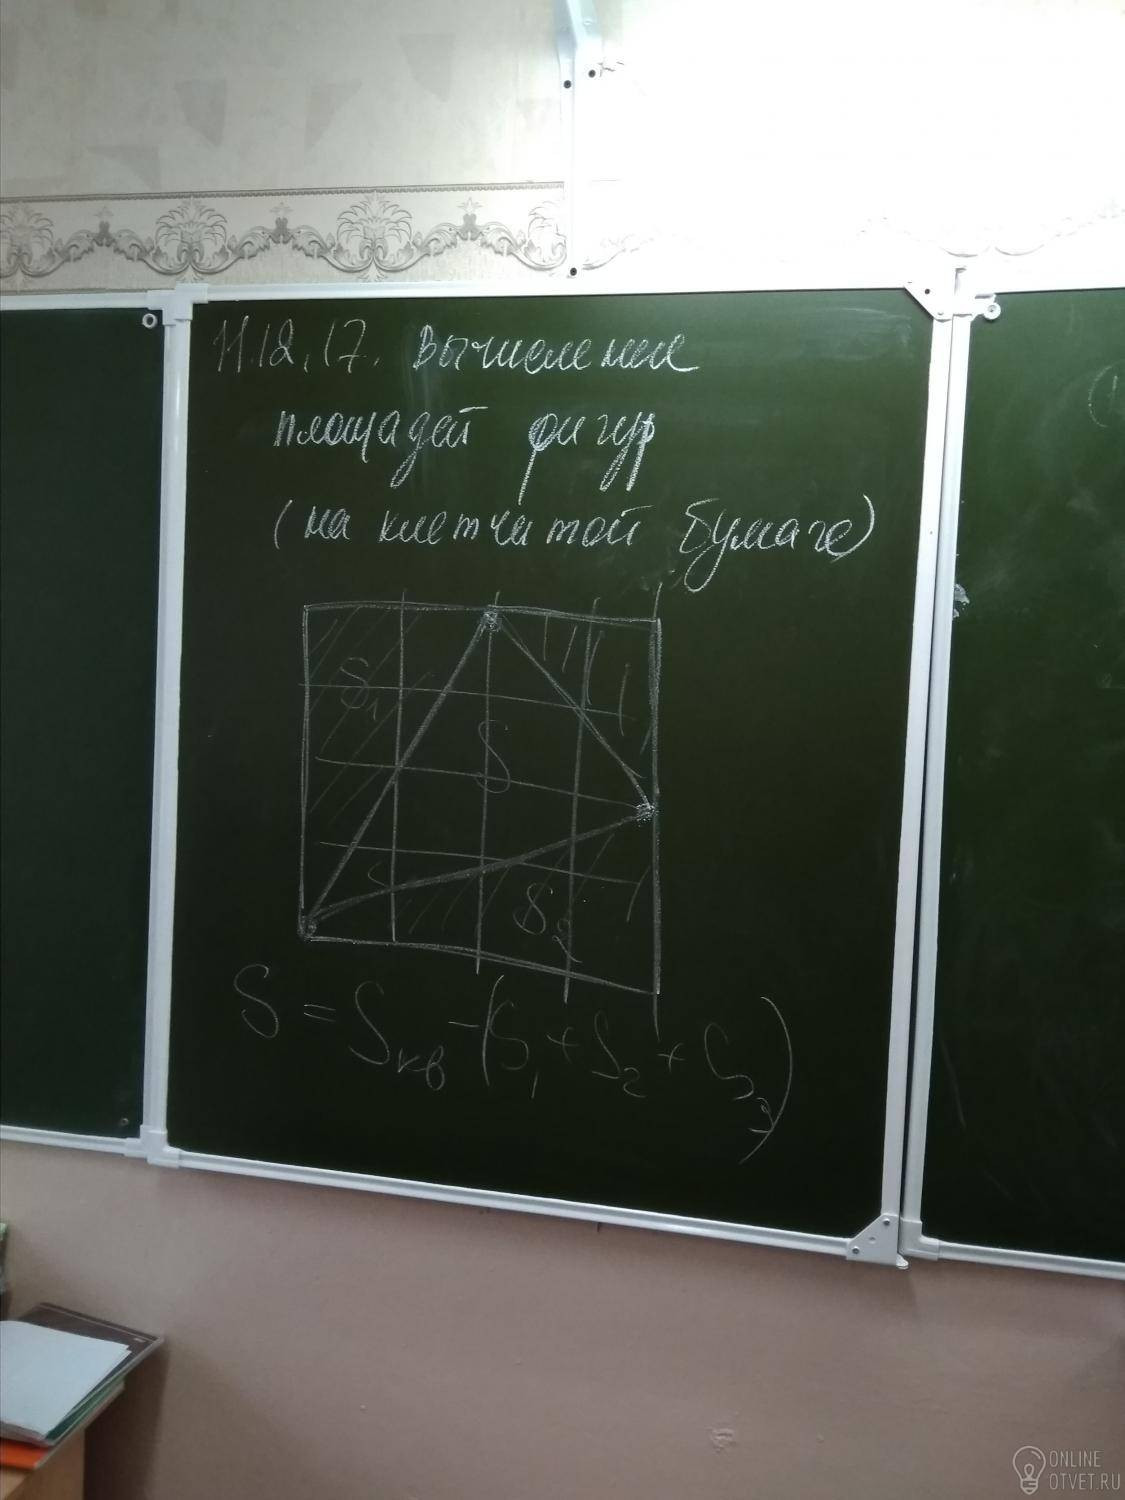 11.12.17. Вычисление
площадей фигур
(на клетчатой бумаге)
S₁
S
S₂
S = Sкв - (S₁ + S₂ + S₃)
ONLINE
OTVET.RU